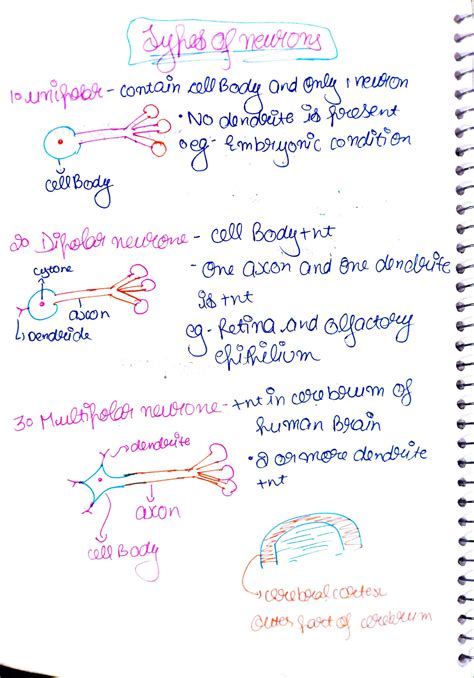 Types of neurons
1. unipolar - contain cell Body and only 1 neuron
• No dendrite is present
• eg - Embryonic condition
cell Body
2. Dipolar neurone - cell Body +nt
cytone
- One axon and one dendrite
is +nt
axon
Dendride
eg - Retina and olfactory
epithilium
3. Multipolar neurone - +nt in cerebrum of
human Brain
dendrite
• 2 or more dendrite
+nt
axon
cell Body
cerebral cortex
Outer part of cerebrum